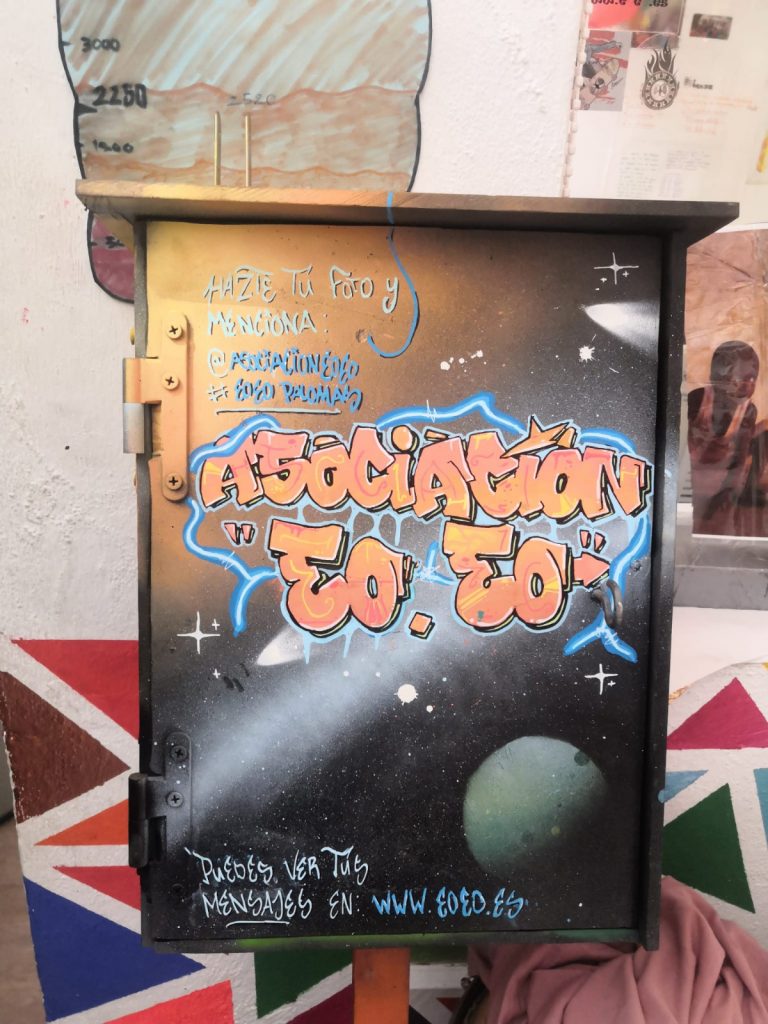 3000
2250
2520
1500
HAZTE TÚ FOTO Y
MENCIONA:
@ASOCIACIONEOEO
# EOEO PALOMAS
ASOCIACIÓN
"EO.EO"
PUEDES VER TÚS
MENSAJES EN: WWW.EOEO.ES